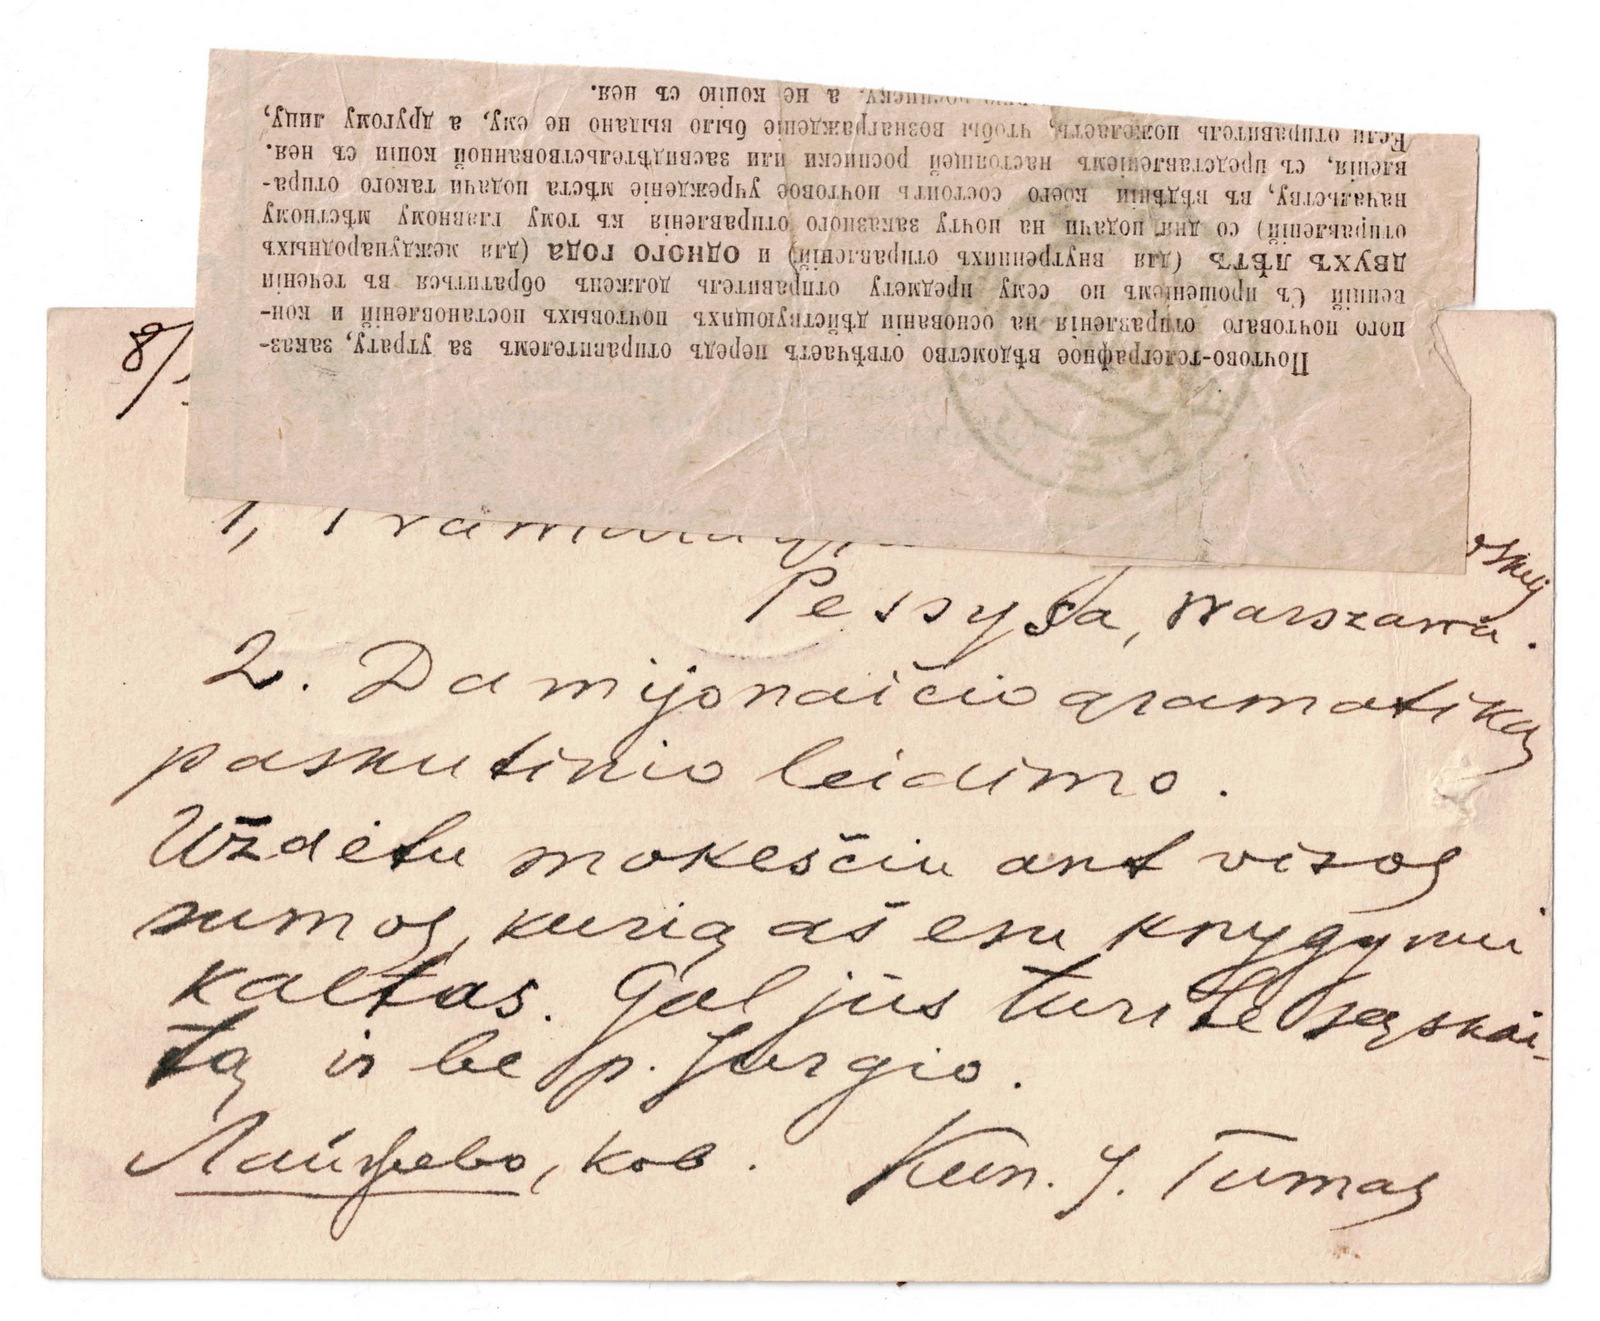 Почтово-телеграфное вѣдомство отвѣчаетъ передъ отправителемъ за утрату, заказ-
ного почтоваго отправленія на основаніи дѣйствующихъ почтовыхъ постановленій и кон-
венцій Съ прошеніемъ по сему предмету отправитель долженъ обратиться въ теченіи
двухъ лѣтъ (для внутреннихъ отправленій) и одного года (для международныхъ
отправленій) со дня подачи на почту заказного отправленія къ тому главному мѣстному
начальству, въ вѣдѣніи коего состоитъ почтовое учрежденіе мѣста подачи такого отпра-
вленія, съ представленіемъ настоящей росписки или засвидѣтельствованной копіи съ нея.
Если отправитель пожелаетъ, чтобы вознагражденіе было выдано не ему, а другому лицу,
росписку, а не копію съ нея.
8/
1,
Warszawa.
2. Damijonaičio gramatiką
paskutinio leidimo.
Uždėtu mokesčiu ant visos
sumos, kurią aš esu knygynui
kaltas. Gal jūs turite sąskai-
tą ir be p. Jurgio.
Лайжево, ков. Kun. J. Tumas